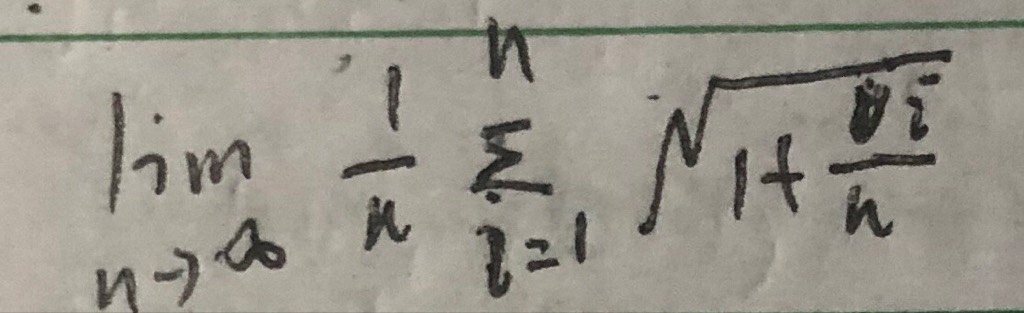 lim_{n→∞} 1/n Σ_{i=1}^{n} √(1+ i/n)